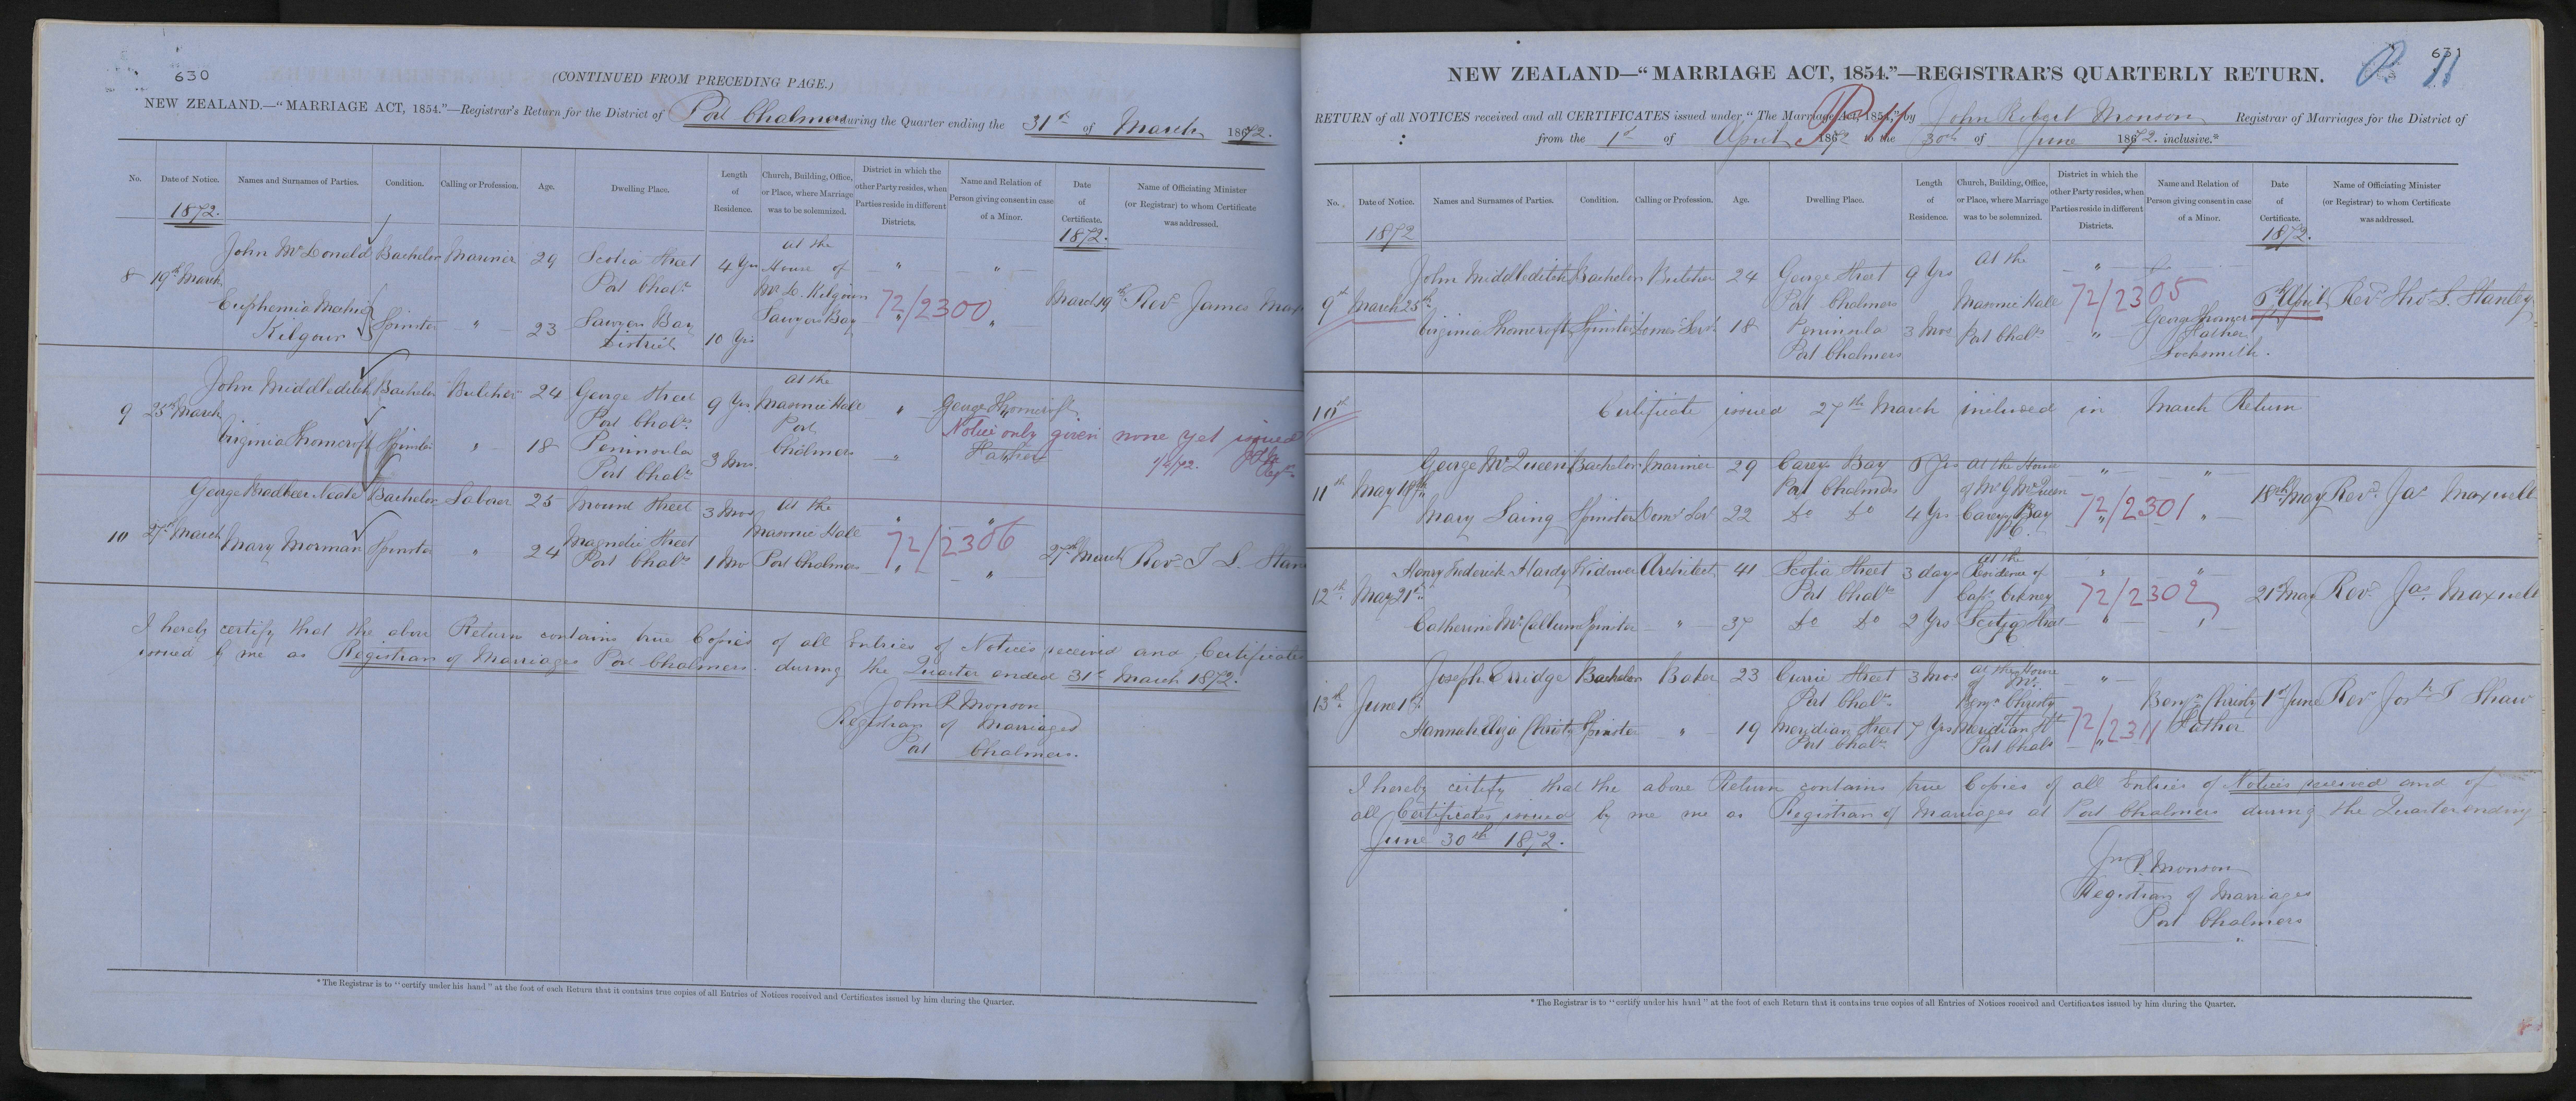 630
(CONTINUED FROM PRECEDING PAGE.)
NEW ZEALAND.—"MARRIAGE ACT, 1854."—Registrar's Return for the District of Port Chalmers during the Quarter ending the 31st of March 1872.
No. Date of Notice. Names and Surnames of Parties. Condition. Calling or Profession. Age. Dwelling Place. Length of Residence. Church, Building, Office, or Place, where Marriage was to be solemnized. District in which the other Party resides, when Parties reside in different Districts. Name and Relation of Person giving consent in case of a Minor. Date of Certificate. Name of Officiating Minister (or Registrar) to whom Certificate was addressed.
1872. 1872.
8 19th March
John McDonald Bachelor Mariner 29 Scotia Street Port Chalrs 4 Yrs
Euphemia Kilgour Spinster " 23 Sawyers Bay District 10 Yrs
at the House of Mr Kilgour Sawyers Bay
" "
72/2300
"
March 19th Revd James
9 25th March
John Middleditch Bachelor Butcher 24 George Street Port Chalrs 9 Yrs
Virginia Thomcroft Spinster " 18 Peninsula Port Chalrs 3 Mos
at the Masonic Hall Port Chalmers
" George Thomcroft
Notice only given none yet issued
" Father
1/4/72.
10 27th March
George Neate Bachelor Laborer 25 Mount Street 3 Mos
Mary Morman Spinster " 24 Magnetic Street Port Chalrs 1 Mo
at the Masonic Hall Port Chalmers
" "
72/2306
" "
27th March Revd T S.
I hereby certify that the above Return contains true Copies of all Entries of Notices received and Certificates
issued by me as Registrar of Marriages Port Chalmers. during the Quarter ended 31st March 1872.
John R Monson
Registrar of Marriages
Port Chalmers.
* The Registrar is to "certify under his hand" at the foot of each Return that it contains true copies of all Entries of Notices received and Certificates issued by him during the Quarter.
631
NEW ZEALAND—"MARRIAGE ACT, 1854."—REGISTRAR'S QUARTERLY RETURN.
P 11
RETURN of all NOTICES received and all CERTIFICATES issued under "The Marriage Act, 1854," by John Robert Monson Registrar of Marriages for the District of
from the 1st of April 1872 to the 30th of June 1872. inclusive.*
No. Date of Notice. Names and Surnames of Parties. Condition. Calling or Profession. Age. Dwelling Place. Length of Residence. Church, Building, Office, or Place, where Marriage was to be solemnized. District in which the other Party resides, when Parties reside in different Districts. Name and Relation of Person giving consent in case of a Minor. Date of Certificate. Name of Officiating Minister (or Registrar) to whom Certificate was addressed.
1872 1872.
9th March 25th
John Middleditch Bachelor Butcher 24 George Street Port Chalmers 9 Yrs
Virginia Thomcroft Spinster Domes Servt 18 Peninsula Port Chalmers 3 Mos
At the Masonic Hall Port Chalrs
"
72/2305
" George Father Locksmith.
April Revd Thos S. Stanley
10th Certificate issued 27th March included in March Return
11th May 18th
George McQueen Bachelor Mariner 29 Careys Bay Port Chalmers Yrs
Mary Laing Spinster Doms Servt 22 Do Do 4 Yrs
at the House of Mr G McQueen Careys Bay P.C.
" "
72/2301
" "
18th May Revd Jas Maxwell
12th May 21st
Henry Frederick Hardy Widower Architect 41 Scotia Street Port Chalrs 3 days
Catherine McCallum Spinster " 37 Do Do 2 Yrs
at the Residence of Capt Scotia Street P.C.
" "
72/2302
" "
21st May Revd Jas Maxwell
13th June 1st
Joseph Erridge Bachelor Baker 23 Currie Street Port Chalrs 3 Mos
Hannah Eliza Christy Spinster " 19 Meridian Street Port Chalrs 7 Yrs
at the House of Mr. Benjn Christy Meridian St Port Chalrs
"
72/2311
"
Benjn Christy Father
1st June Revd T Shaw
I hereby certify that the above Return contains true Copies of all Entries of Notices received and of
all Certificates issued by me me as Registrar of Marriages at Port Chalmers during the Quarter ending
June 30th 1872.
Jn R. Monson
Registrar of Marriages
Port Chalmers
* The Registrar is to "certify under his hand" at the foot of each Return that it contains true copies of all Entries of Notices received and Certificates issued by him during the Quarter.